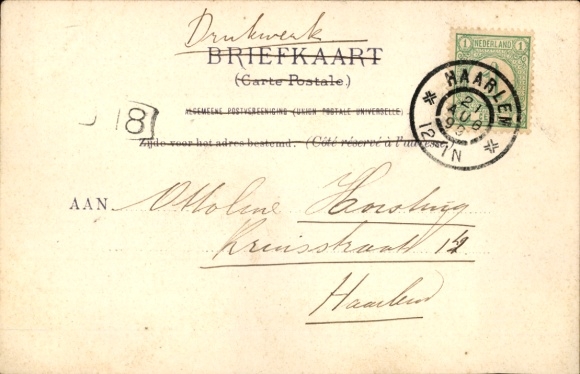 Drukwerk
BRIEFKAART
(Carte Postale.)
ALGEMEENE POSTVEREENIGING (UNION POSTALE UNIVERSELLE)
Zijde voor het adres bestemd. (Côté réservé à l'adresse
1 NEDERLAND 1
HAARLEM
21
AUG
12-1N
18
AAN Ottoline Horsting
Kruisstraat
Haarlem